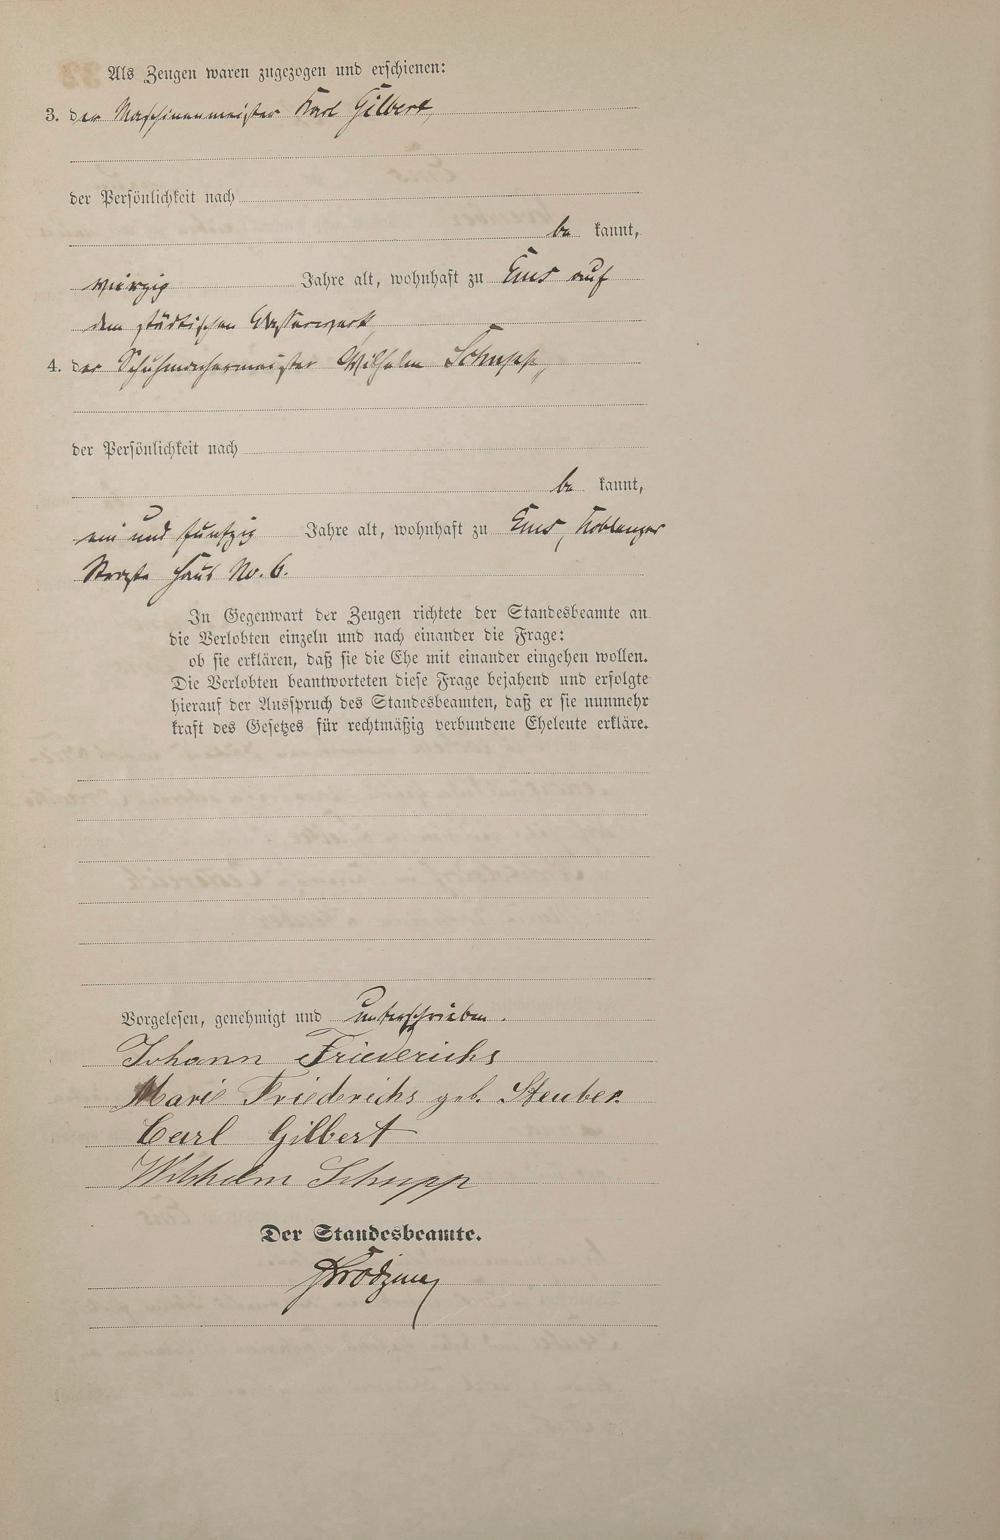 Als Zeugen waren zugezogen und erschienen:
3. der Maschinenmeister Karl Gilbert,
der Persönlichkeit nach
be kannt,
vierzig Jahre alt, wohnhaft zu Ems auf
dem städtischen Wasserwerk,
4. der Schuhmachermeister Wilhelm Schupp,
der Persönlichkeit nach
be kannt,
ein und fünfzig Jahre alt, wohnhaft zu Ems, Koblenzer
Straße Haus No. 6.
In Gegenwart der Zeugen richtete der Standesbeamte an
die Verlobten einzeln und nach einander die Frage:
ob sie erklären, daß sie die Ehe mit einander eingehen wollen.
Die Verlobten beantworteten diese Frage bejahend und erfolgte
hierauf der Ausspruch des Standesbeamten, daß er sie nunmehr
kraft des Gesetzes für rechtmäßig verbundene Eheleute erkläre.
Vorgelesen, genehmigt und unterschrieben.
Johann Friederichs
Marie Friedrichs geb. Steuber.
Carl Gilbert
Wilhelm Schupp
Der Standesbeamte.